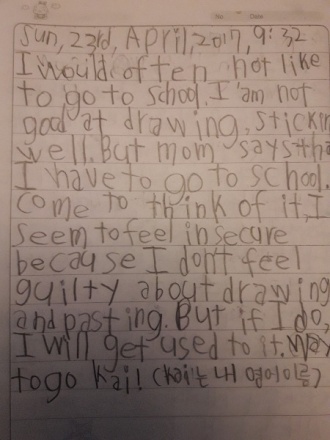 No. Date
Sun, 23rd, April, 2017, 9:32
I would often not like
to go to school. I am not
good at drawing, stickin
well. But mom says tha
I have to go to school.
Come to think of it, I
seem to feel insecure
because I don't feel
guilty about drawing
and pasting. But if I do,
I will get used to it. Way
to go Kai! (Kai는 내 영어이름)